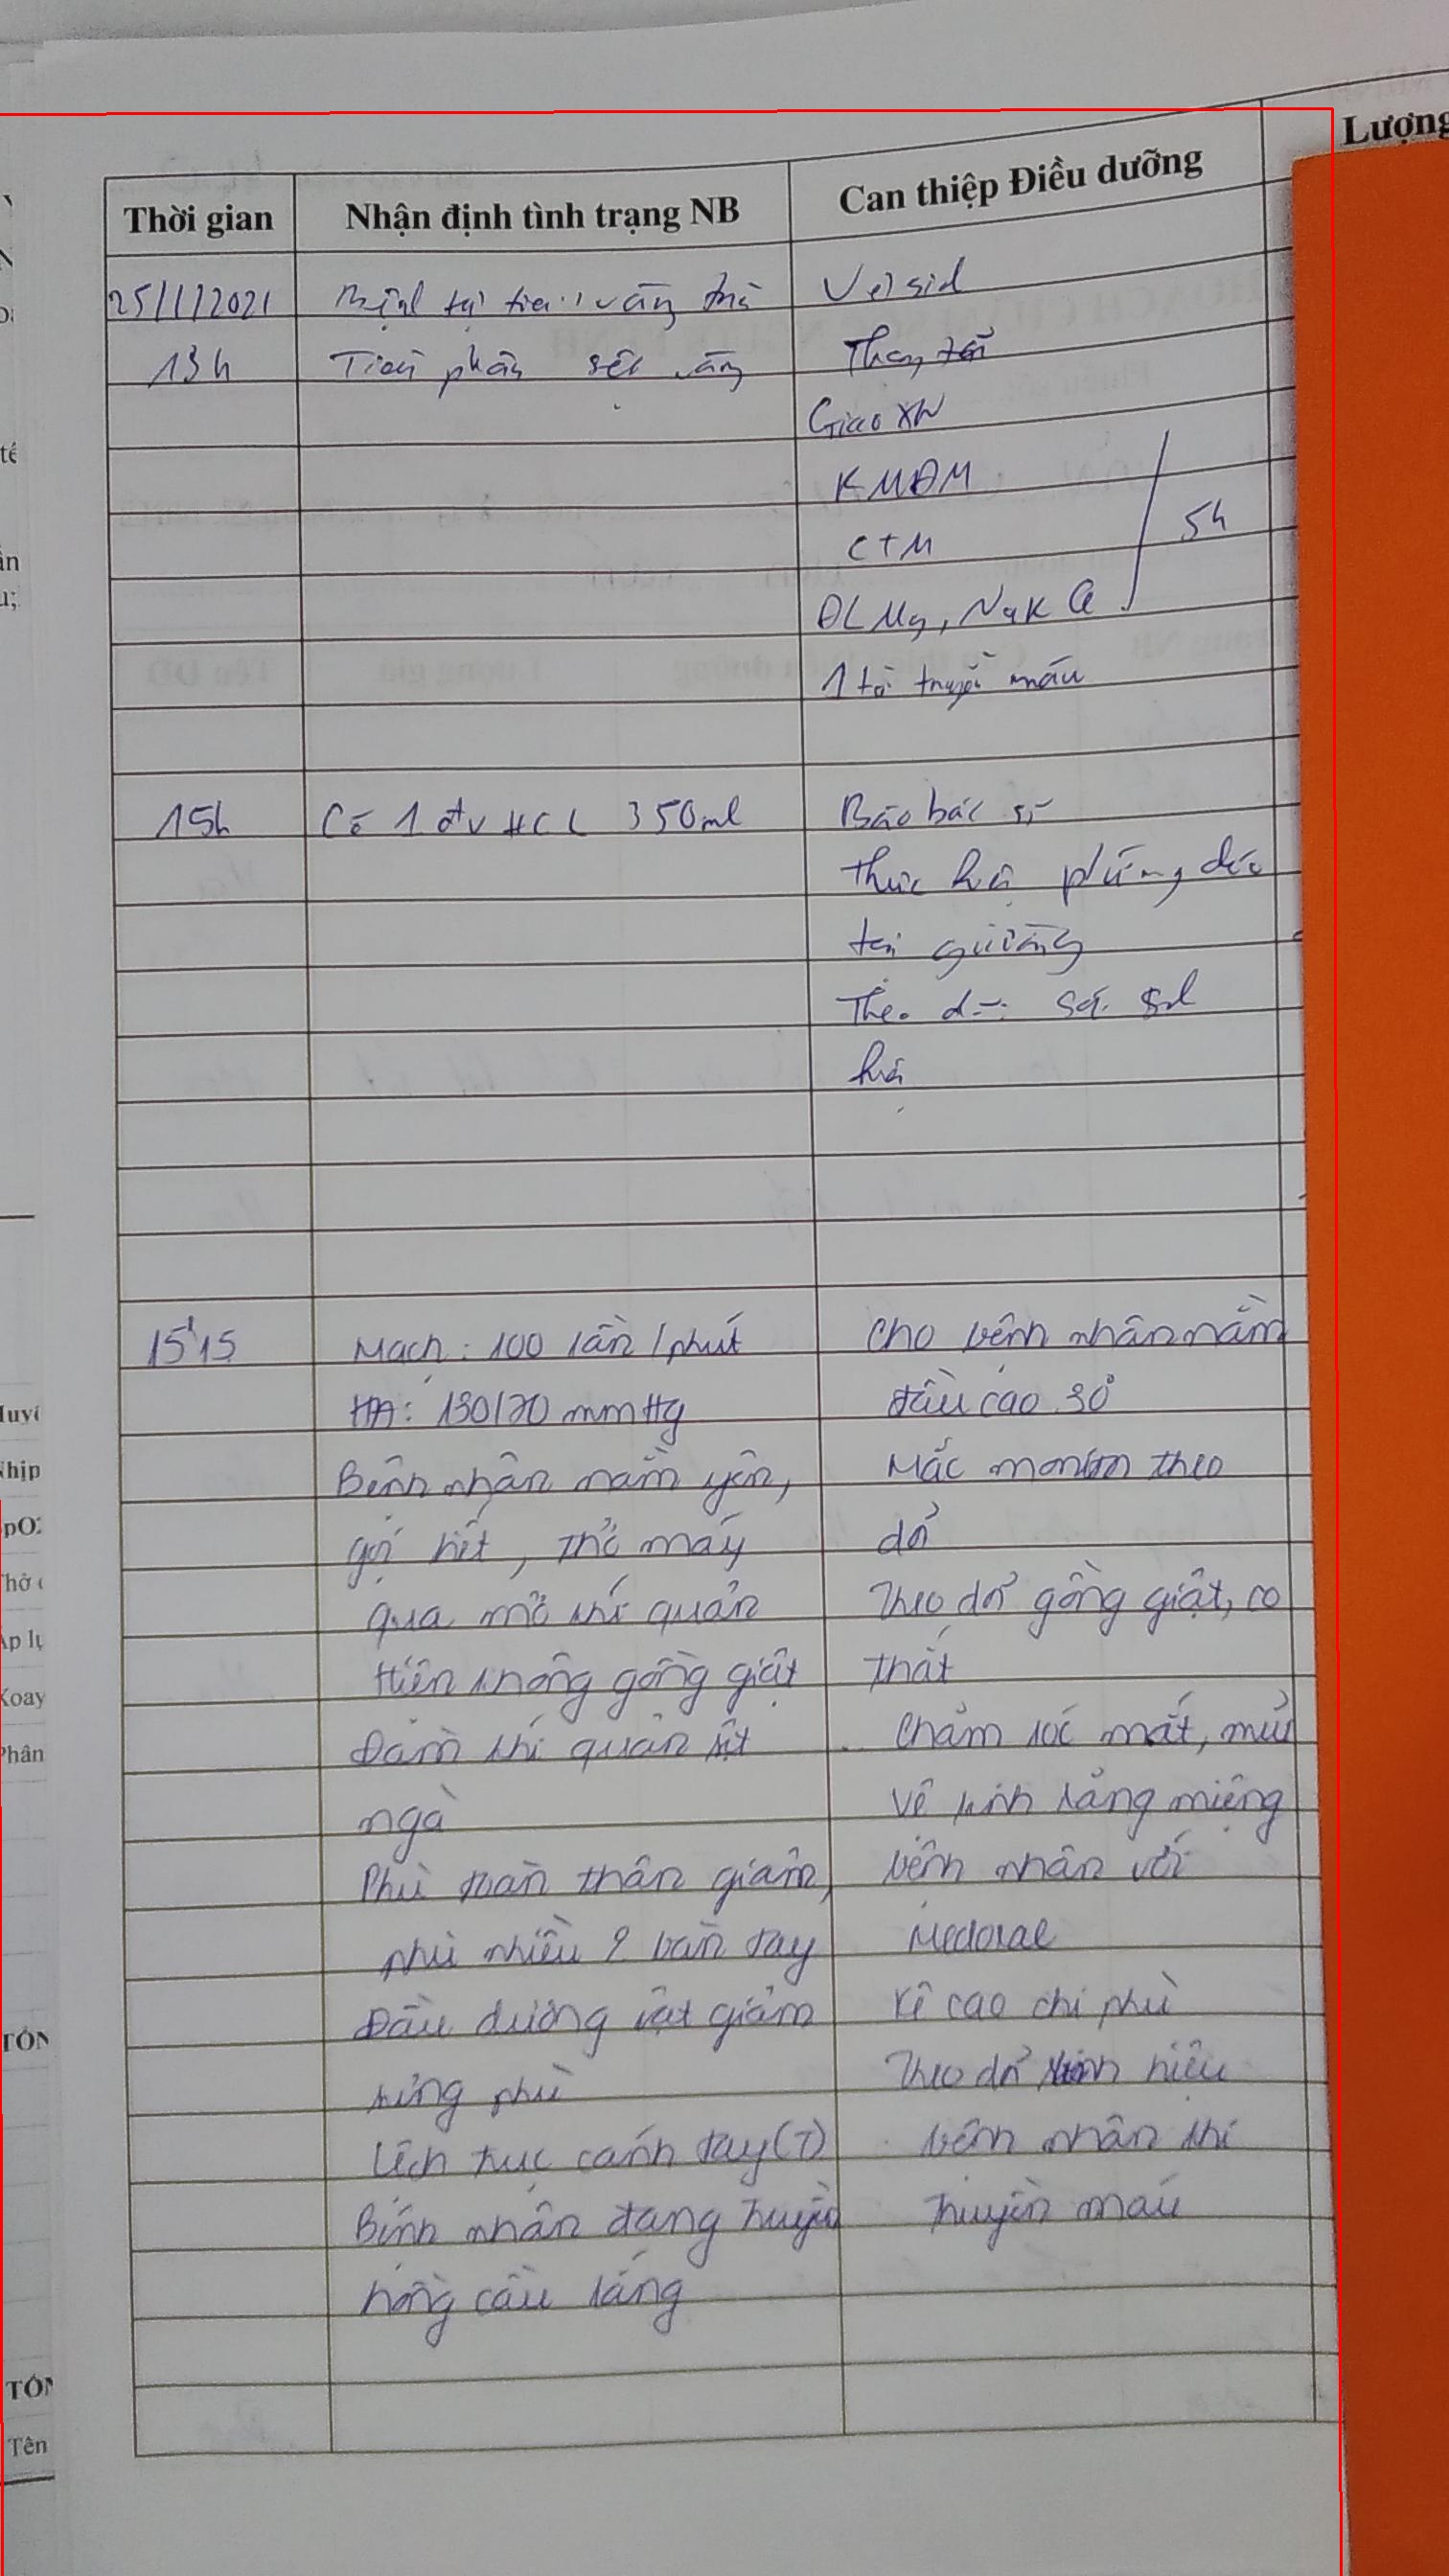 Lượng
Thời gian Nhận định tình trạng NB Can thiệp Điều dưỡng
25/1/2021 Bệnh tự tiểu vàng Vệ sinh
13h Tiêu phân sệt vàng Thay tã
Giao XN
KMĐM
CTM 5h
ĐL Mg, NaK Cl
1 tờ truyền máu
15h Có 1 đv HCL 350ml Báo bác sĩ
Thực hiện phản ứng chéo
tại giường
Theo dõi sát sinh
hiệu
15h15 Mạch: 100 lần/phút Cho bệnh nhân nằm
HA: 130/70 mmHg đầu cao 30°
Bệnh nhân nằm yên, Mắc monitor theo
gọi biết, thở máy dõi
qua mở khí quản Theo dõi gồng giật, co
Hiện không gồng giật thắt
Đàm khí quản ít Chăm sóc mắt, mũi
ngà Vệ sinh răng miệng
Phù toàn thân giảm, bệnh nhân với
phù nhiều 2 bàn tay Medoral
Đầu dương vật giảm Kê cao chi phù
sưng phù Theo dõi sinh hiệu
Lệch trục cánh tay (T) bệnh nhân khi
Bệnh nhân đang truyền truyền máu
hồng cầu lắng
tế
ần
u;
Huyế
Nhịp
SpO2
Thở
Áp lự
Xoay
Phân
TỔN
TỔN
Tên